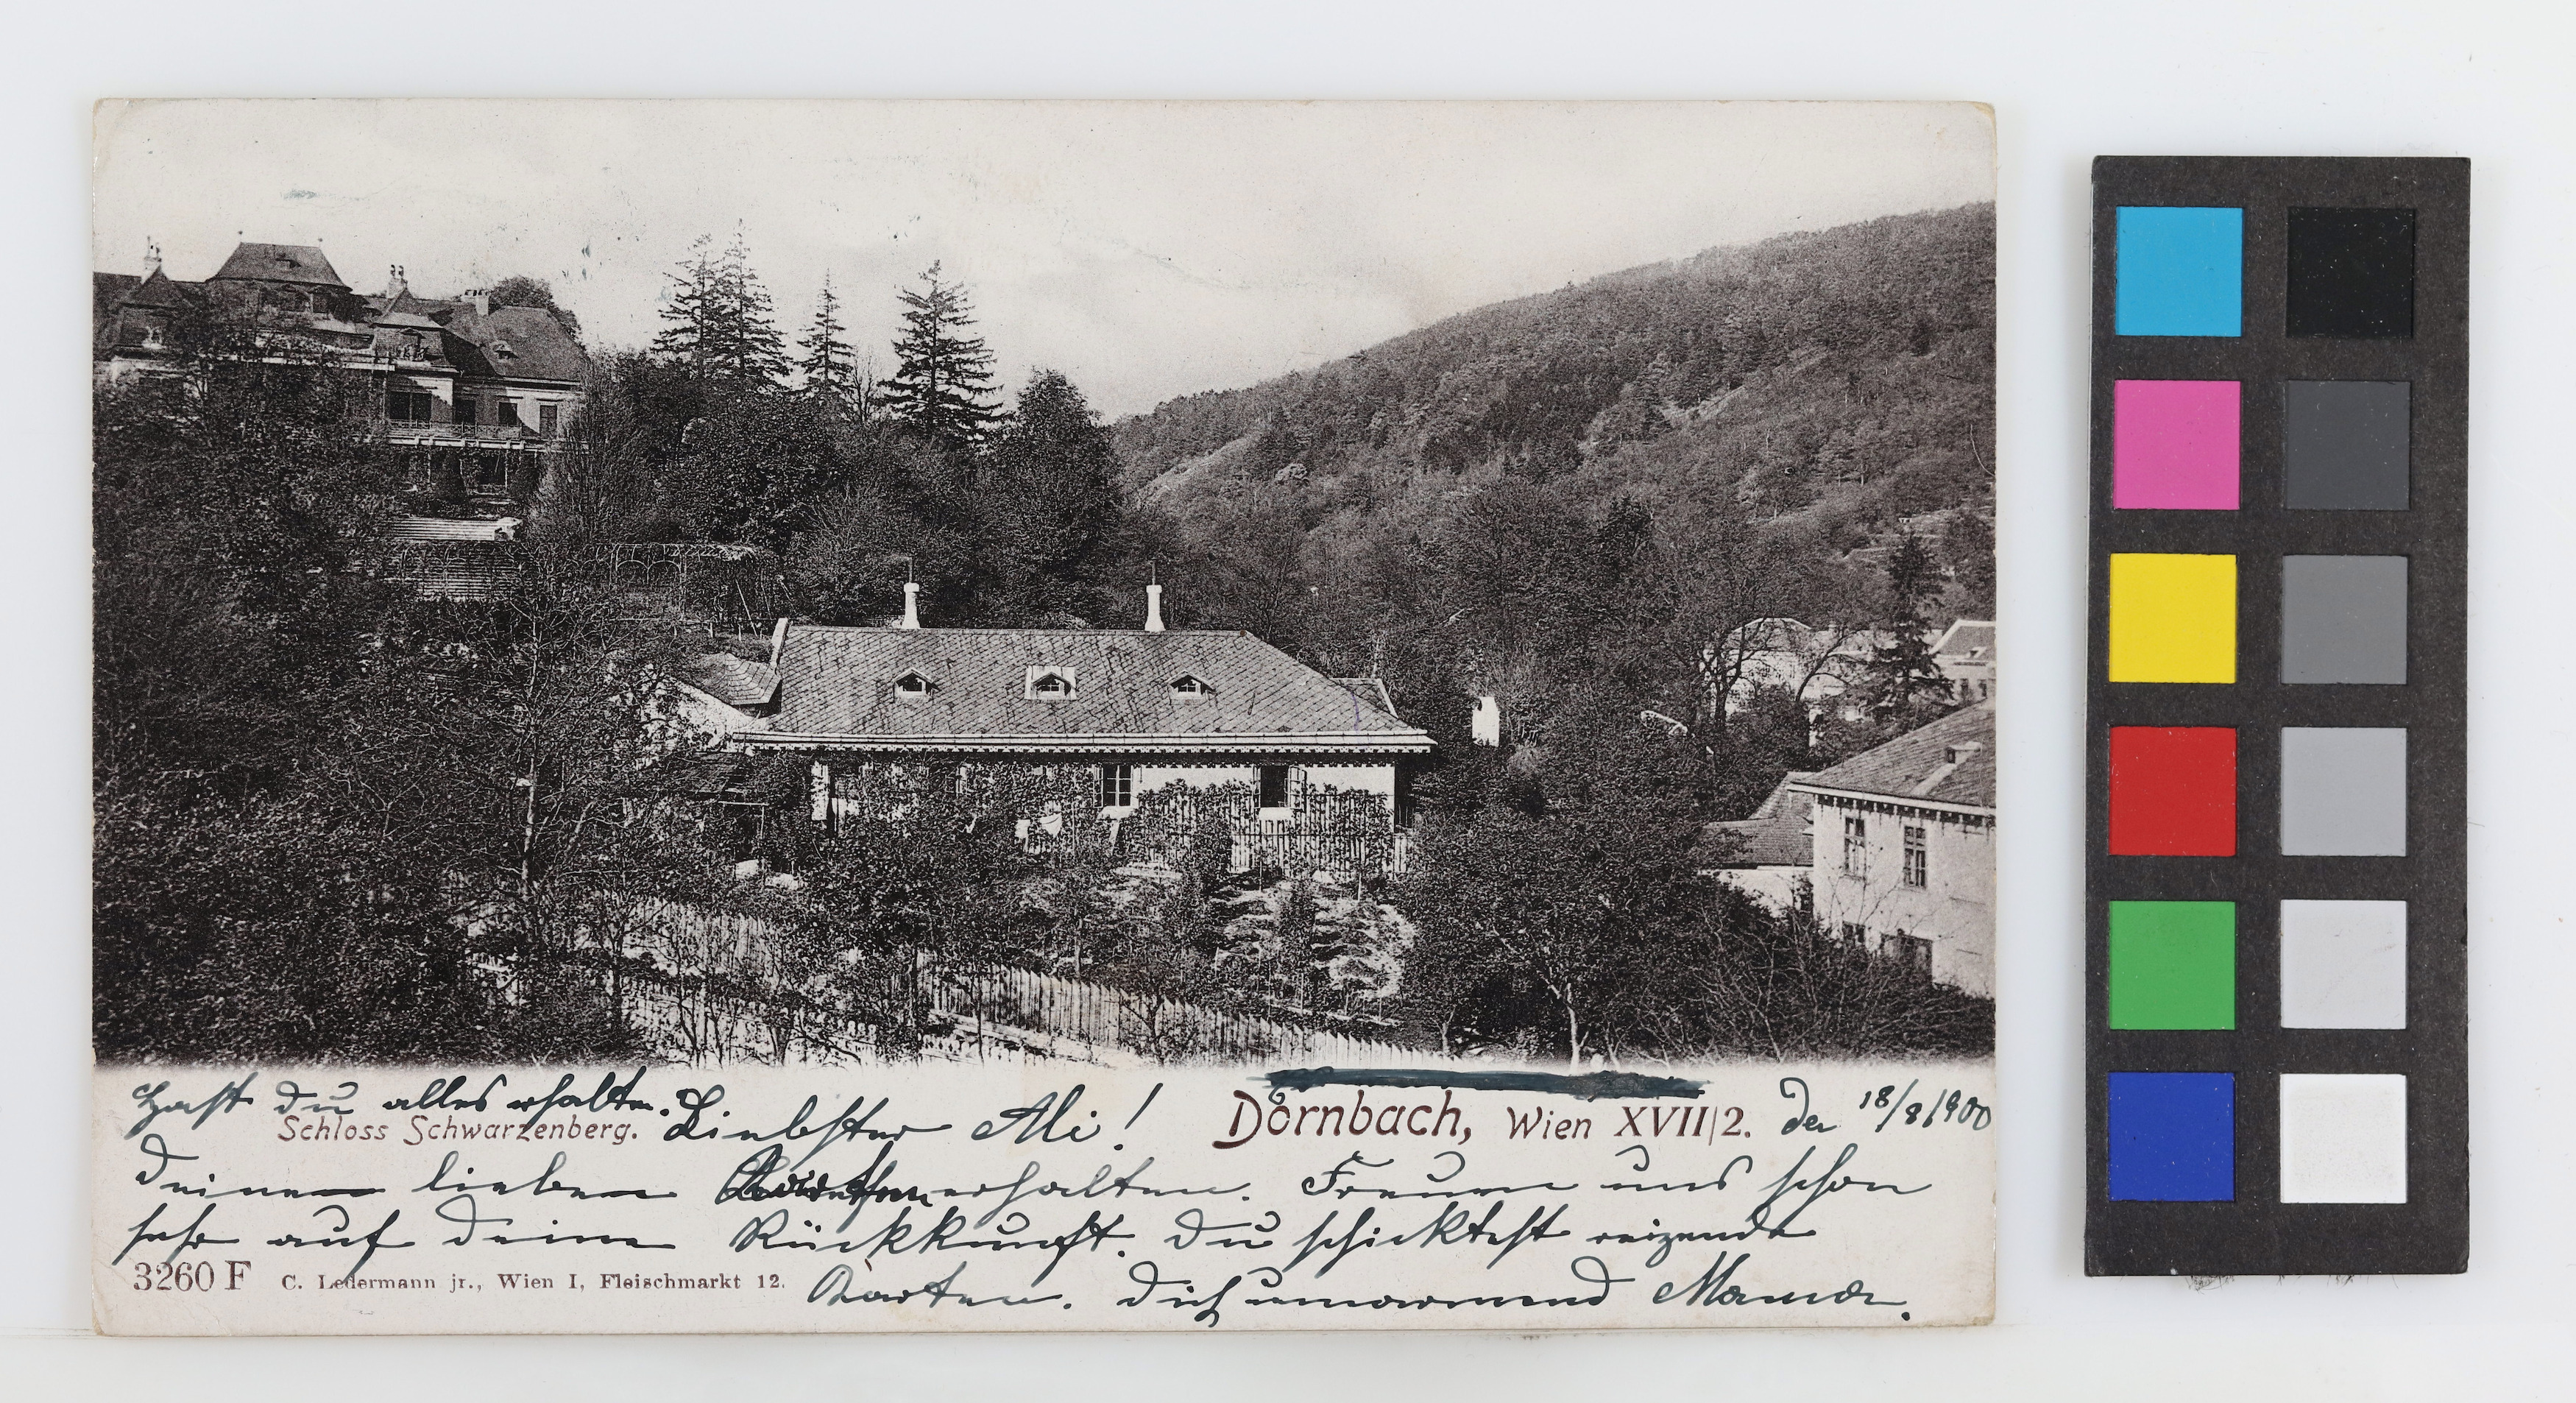 Hast du alles erhalten.
Schloss Schwarzenberg.
Liebster Ali!
Dornbach, Wien XVII/2. den 18/8 1900
Deinen lieben erhalten. Freuen uns schon
sehr auf deine Rückkunft. Du schicktest reizende
Karten. Dich umarmend Mama.
3260 F C. Ledermann jr., Wien I, Fleischmarkt 12.